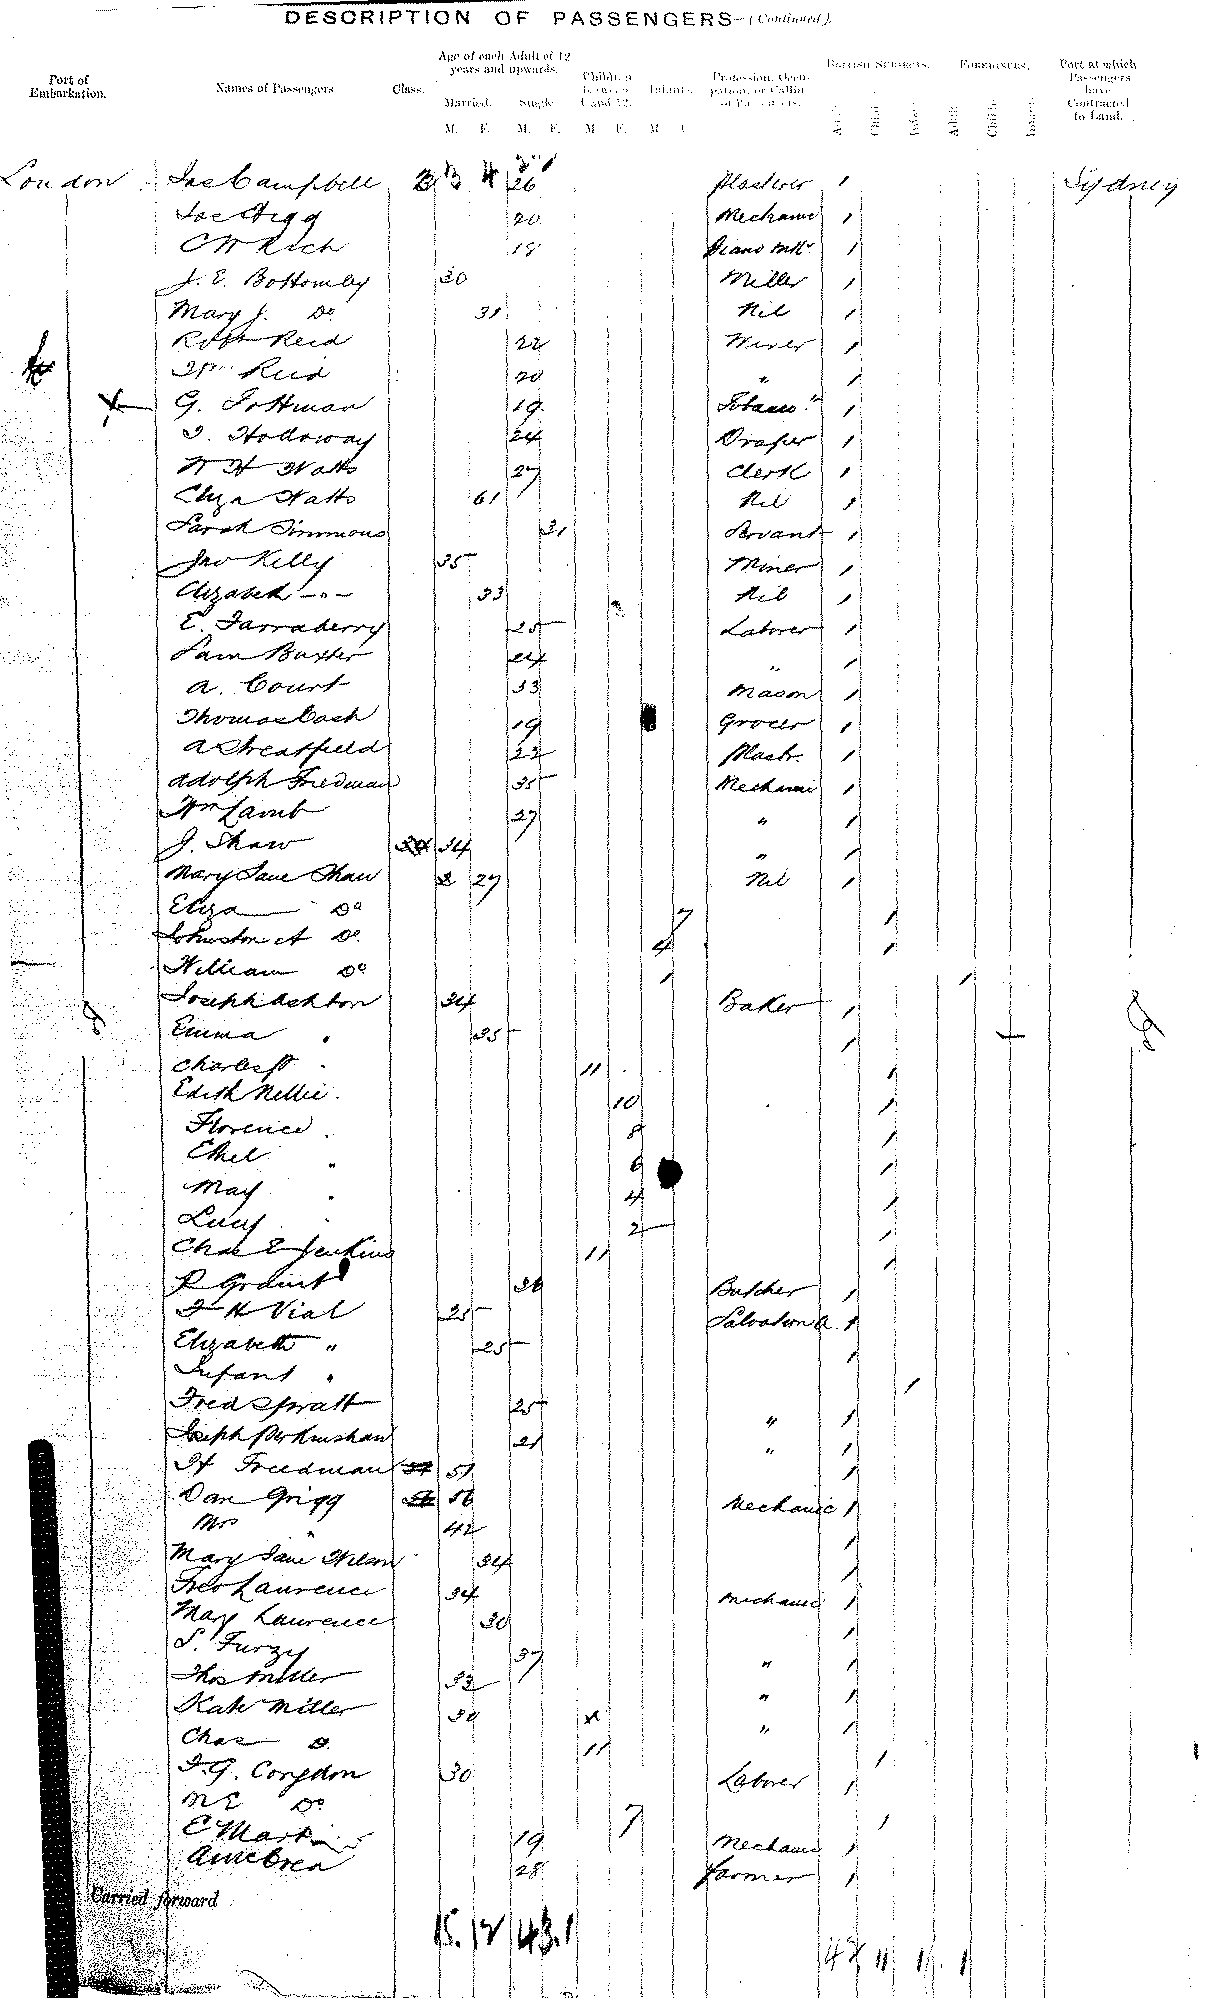 DESCRIPTION OF PASSENGERS—(Continued).
Port of Embarkation. Names of Passengers Class. Age of each Adult of 12 years and upwards. Children between 1 and 12. Infants. Profession, Occupation, or Calling of Passengers. BRITISH SUBJECTS. FOREIGNERS. Port at which Passengers have Contracted to Land.
Married. Single.
M. F. M. F. M. F. M. F. Adult Child Infant Adult Child Infant
London Jas Campbell 26 Plasterer 1 Sydney
20 Mechanic 1
C W Rich 18 Piano Mkr 1
J. E. Bottomley 30 Miller 1
Mary J. Do 31 Nil 1
Robt Reid 22 Miner 1
Wm Reid 20 " 1
G. 19 1
J. Holloway 24 Draper 1
W H Watts 27 Clerk 1
Eliza Watts 61 Nil 1
Sarah Simmons 31 Servant 1
Jno Kelly 35 Miner 1
Elizabeth -"- 33 Nil 1
E. Farraberry 25 Laborer 1
Sam Baxter 24 " 1
A. Court 33 Mason 1
Thomas Cash 19 Grocer 1
A Streatfield 22 Plastr. 1
Adolph Friedman 35 Mechanic 1
Wm Lamb 27 " 1
J. Shaw 34 " 1
Mary Jane Shaw 27 Nil 1
Eliza Do 7 1
Johnston A Do 4 1
William Do 1 1
Joseph Ashton 34 Baker 1
Emma " 35 1
Charles " 11 1
Edith Nellie " 10 1
Florence " 8 1
Ethel " 6 1
May " 4 1
Lucy " 2 1
Chas E Jenkins 11 1
R 36 Butcher 1
F H Vial 25 Salvation A. 1
Elizabeth " 25 1
Infant " 1
Fred Spratt 25 " 1
Joseph 21 " 1
H Freedman 51 1
Dan Grigg 56 Mechanic 1
Mrs " 42 1
Mary Jane Wilson 34 1
Laurence 34 Mechanic 1
Mary Laurence 30 1
S. Furzy 37 " 1
Thos Miller 32 " 1
Kate Miller 30 " 1
Chas D. 11 1
F. G. Congdon 30 Laborer 1
M E Do 7 1
E Martin 19 Mechanic 1
28 Farmer 1
Carried forward
15. 12 43. 1 11 1